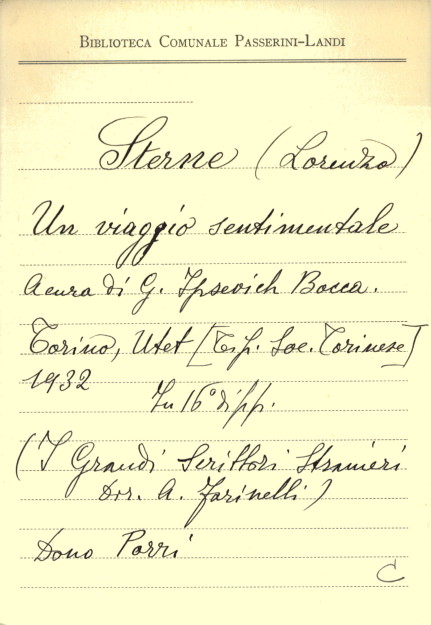 BIBLIOTECA COMUNALE PASSERINI-LANDI
Sterne (Lorenzo)
Un viaggio sentimentale
A cura di G. Ipsevich Bocca.
Torino, Utet [Tip. Soc. Torinese]
1932 In 16° di pp.
(I Grandi Scrittori Stranieri
Dir. A. Farinelli)
Dono Porri
C